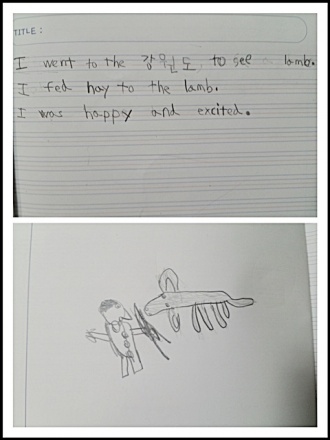 TITLE:
I went to the 강원도 to see a lamb.
I fed hay to the lamb.
I was happy and excited.